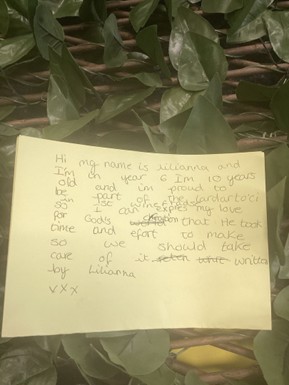 Hi my name is Lilianna and
I'm in year 6 I'm 10 years
old and im proud to
be part of the Laudarto'ci
in 1st wintefriedas
so I can expres my love
for Gods creation that He took
time and efort to make
so we should take
care of it written
by Lilianna
v x x